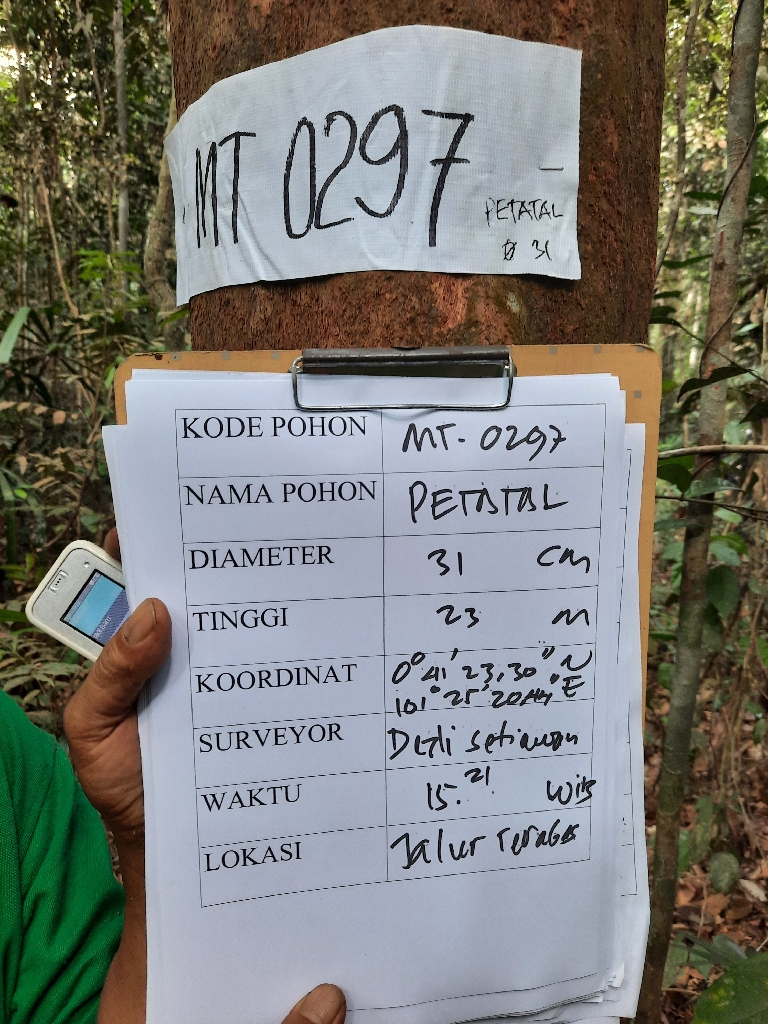 MT 0297
PETATAL
Ø 31
KODE POHON MT- 0297
NAMA POHON PETATAL
DIAMETER 31 CM
TINGGI 23 M
KOORDINAT 0° 41' 23,30" N
101° 25' 20,44" E
SURVEYOR Dedi setiawan
WAKTU 15.21 Wib
LOKASI Jalur